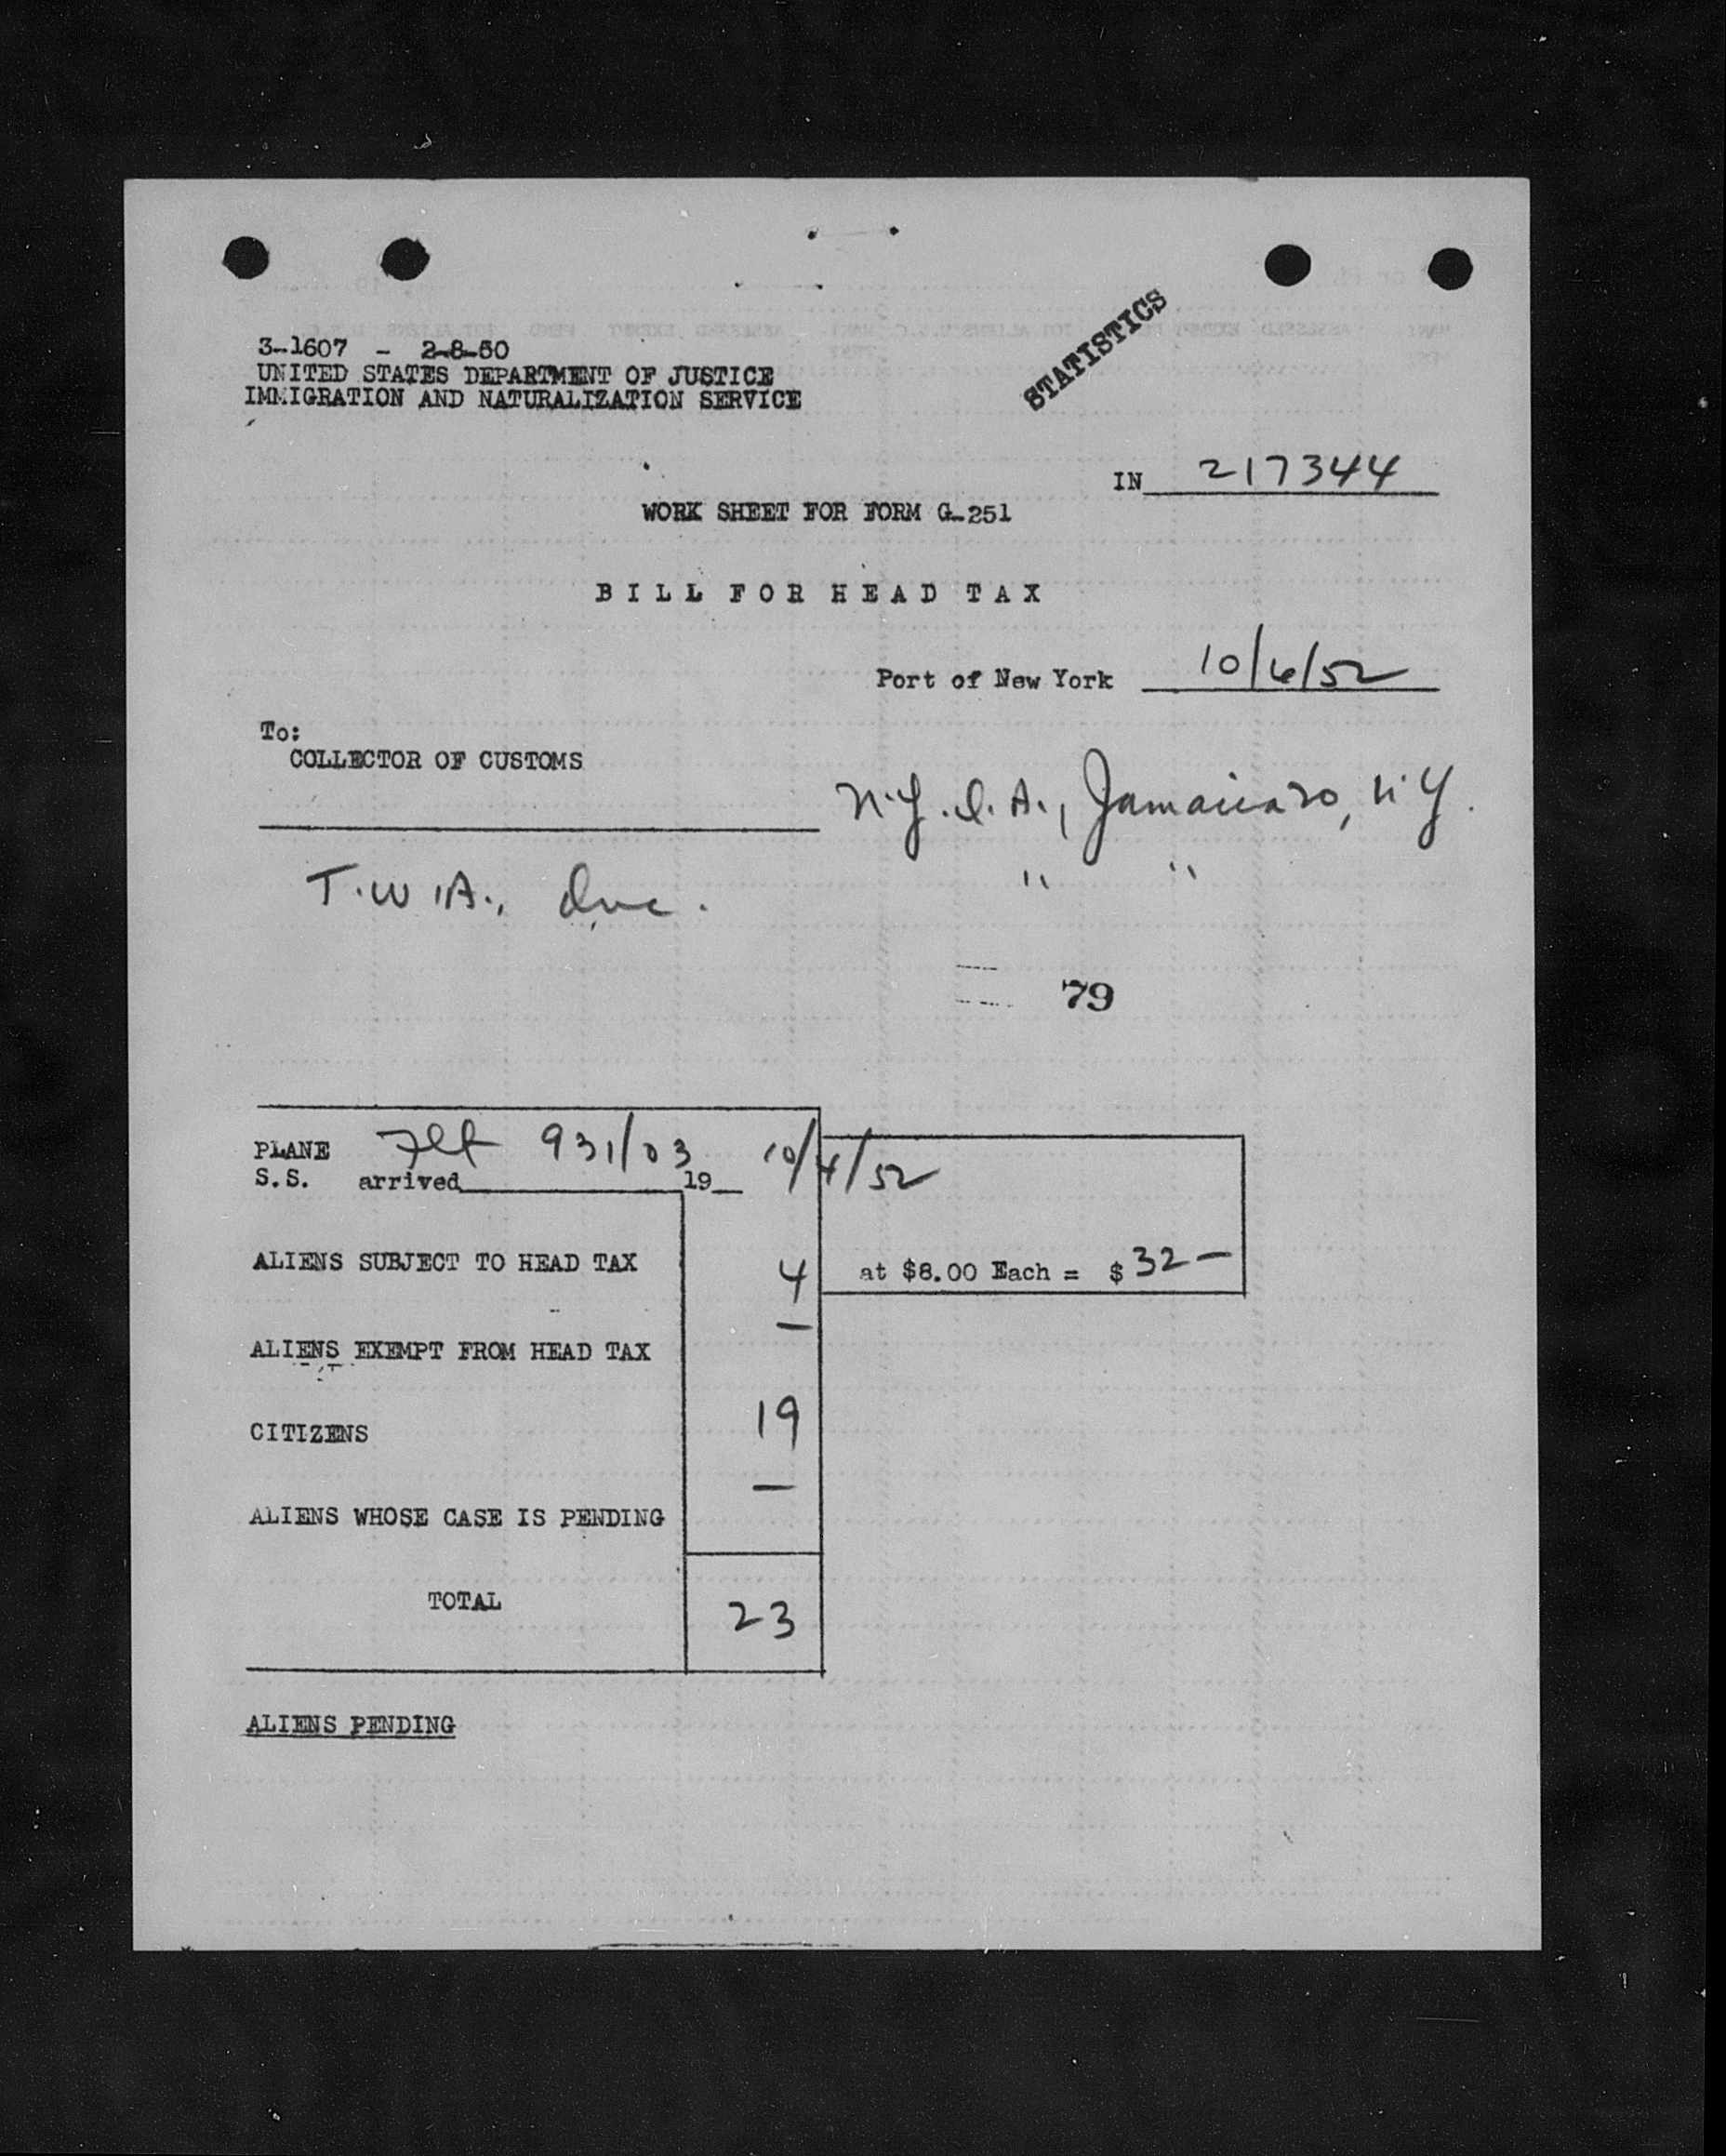 STATISTICS
3-1607 - 2-8-50
UNITED STATES DEPARTMENT OF JUSTICE
IMMIGRATION AND NATURALIZATION SERVICE
IN 217344
WORK SHEET FOR FORM G-251
BILL FOR HEAD TAX
Port of New York 10/6/52
To:
COLLECTOR OF CUSTOMS
N.Y.I.A., Jamaica 30, N.Y.
T.W.A., Inc. " "
79
PLANE Flt 931/03 10/4/52
S.S. arrived 19
ALIENS SUBJECT TO HEAD TAX 4 at $8.00 Each = $ 32 —
ALIENS EXEMPT FROM HEAD TAX —
CITIZENS 19
ALIENS WHOSE CASE IS PENDING —
TOTAL 23
ALIENS PENDING